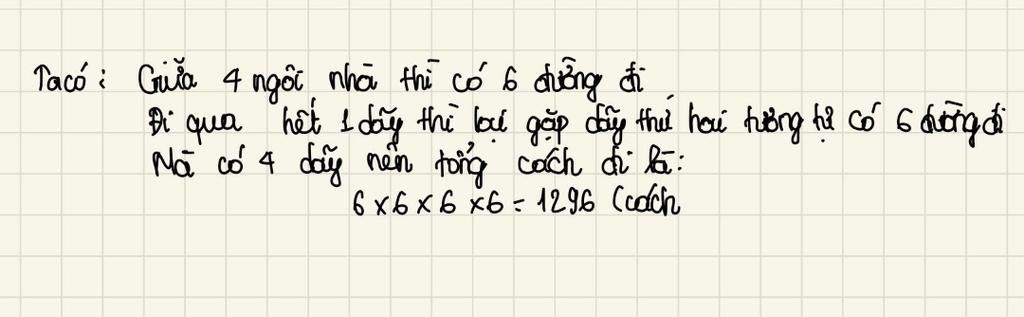 Ta có: Giữa 4 ngôi nhà thì có 6 đường đi
Đi qua hết 1 dãy thì lại gặp dãy thứ hai tương tự có 6 đường đi
Mà có 4 dãy nên tổng cách đi là:
6 x 6 x 6 x 6 = 1296 (cách